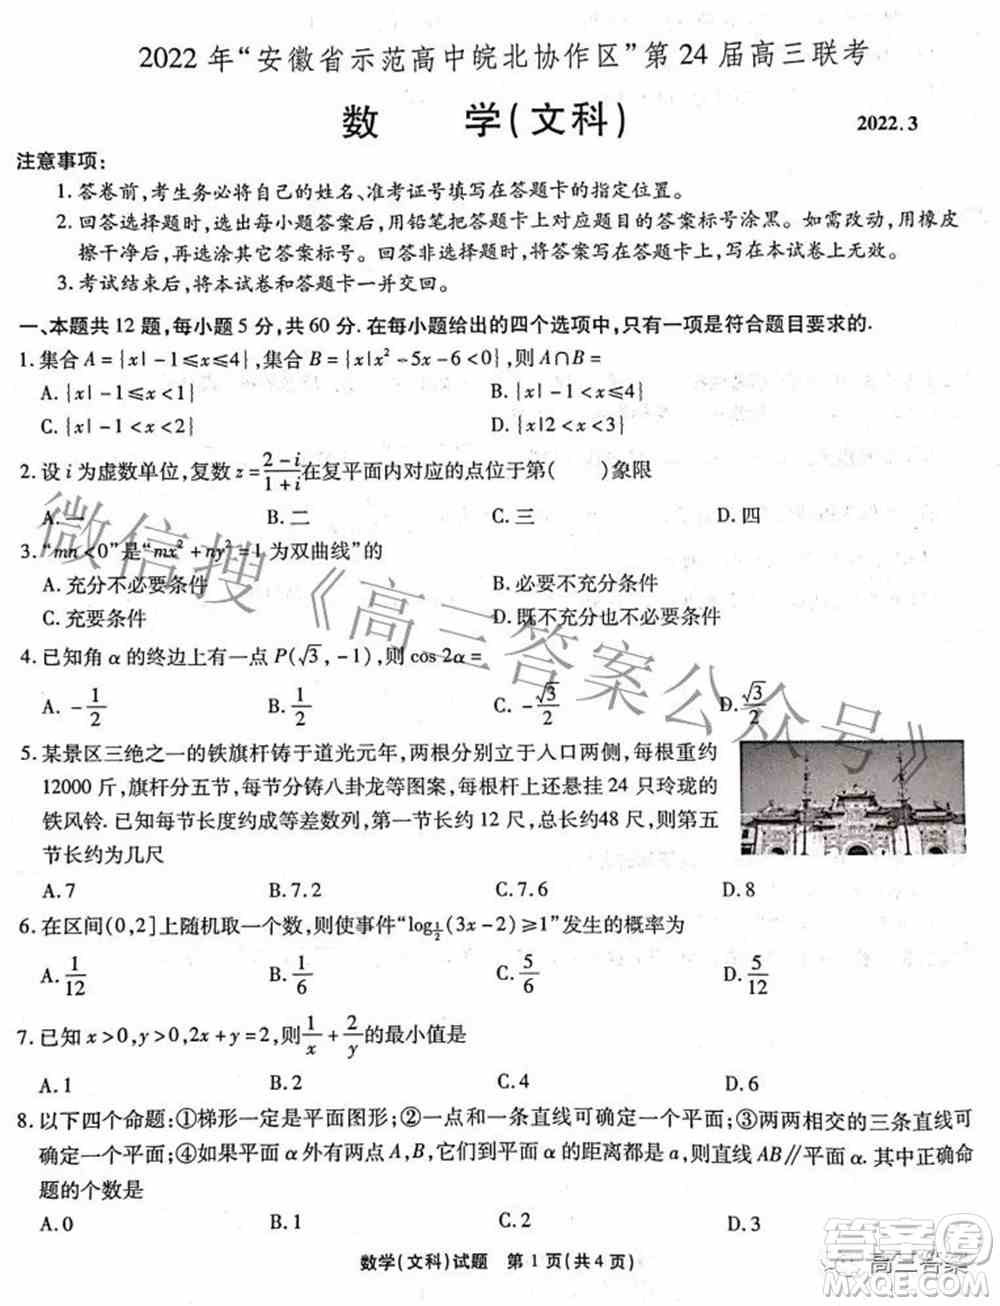 2022 年“安徽省示范高中皖北协作区”第 24 届高三联考
数 学(文科)
2022.3
注意事项:
1. 答卷前,考生务必将自己的姓名、准考证号填写在答题卡的指定位置。
2. 回答选择题时,选出每小题答案后,用铅笔把答题卡上对应题目的答案标号涂黑。如需改动,用橡皮
擦干净后,再选涂其它答案标号。回答非选择题时,将答案写在答题卡上,写在本试卷上无效。
3. 考试结束后,将本试卷和答题卡一并交回。
一、本题共 12 题,每小题 5 分,共 60 分. 在每小题给出的四个选项中,只有一项是符合题目要求的.
1. 集合 A = {x|-1≤x≤4},集合 B = {x|x²-5x-6<0},则 A∩B =
A. {x|-1≤x<1} B. {x|-1<x≤4}
C. {x|-1<x<2} D. {x|2<x<3}
2. 设 i 为虚数单位,复数 z = (2-i)/(1+i) 在复平面内对应的点位于第( )象限
A. 一 B. 二 C. 三 D. 四
3. “mn<0”是“mx²+ny²=1 为双曲线”的
A. 充分不必要条件 B. 必要不充分条件
C. 充要条件 D. 既不充分也不必要条件
4. 已知角 α 的终边上有一点 P(√3,-1),则 cos 2α =
A. -1/2 B. 1/2 C. -√3/2 D. √3/2
5. 某景区三绝之一的铁旗杆铸于道光元年,两根分别立于入口两侧,每根重约
12000 斤,旗杆分五节,每节分铸八卦龙等图案,每根杆上还悬挂 24 只玲珑的
铁风铃. 已知每节长度约成等差数列,第一节长约 12 尺,总长约48 尺,则第五
节长约为几尺
A. 7 B. 7.2 C. 7.6 D. 8
6. 在区间(0,2]上随机取一个数,则使事件“log_{1/2}(3x-2)≥1”发生的概率为
A. 1/12 B. 1/6 C. 5/6 D. 5/12
7. 已知 x>0,y>0,2x+y=2,则 1/x + 2/y 的最小值是
A. 1 B. 2 C. 4 D. 6
8. 以下四个命题:①梯形一定是平面图形;②一点和一条直线可确定一个平面;③两两相交的三条直线可
确定一个平面;④如果平面 α 外有两点 A,B,它们到平面 α 的距离都是 a,则直线 AB∥平面 α. 其中正确命
题的个数是
A. 0 B. 1 C. 2 D. 3
数学(文科)试题 第 1 页(共 4 页)
微信搜《高三答案公众号》
高三答案
答案圈
MXQE.COM